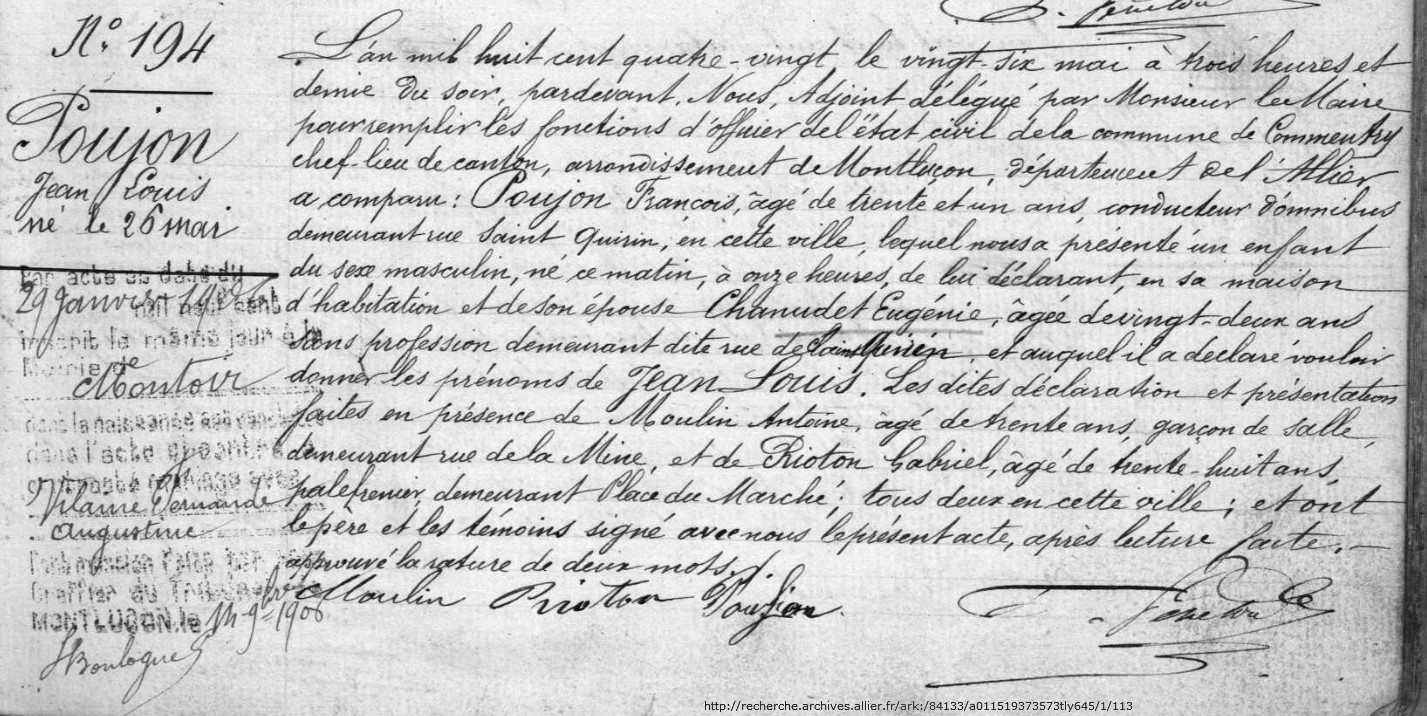 N° 194
Poujon
Jean Louis
né le 26 mai
Par acte en date du
29 Janvier
inscrit le même jour à la
Mairie de
Montoir
dans la naissance
dans l'acte ci-contre a
contracté mariage avec
Vilaine Fernande
Augustine
Greffier du Tribunal
MONTLUÇON, le 14 9bre 1906
Boulogne
L'an mil huit cent quatre-vingt le vingt-six mai à trois heures et
demie du soir, pardevant, Nous, Adjoint délégué par Monsieur le Maire
pour remplir les fonctions d'officier de l'état civil de la commune de Commentry
chef-lieu de canton, arrondissement de Montluçon, département de l'Allier
a comparu : Poujon François, âgé de trente et un ans, conducteur d'omnibus
demeurant rue Saint Quirin, en cette ville, lequel nous a présenté un enfant
du sexe masculin, né ce matin, à onze heures, de lui déclarant, en sa maison
d'habitation et de son épouse Chanudet Eugénie, âgée de vingt-deux ans
sans profession demeurant dite rue de Saint Quirin, et auquel il a déclaré vouloir
donner les prénoms de Jean Louis. Les dites déclaration et présentation
faites en présence de Moulin Antoine, âgé de trente ans, garçon de salle,
demeurant rue de la Mine, et de Rioton Gabriel, âgé de trente-huit ans,
palefrenier, demeurant Place du Marché ; tous deux en cette ville ; et ont
le père et les témoins signé avec nous le présent acte, après lecture faite. —
approuvé la rature de deux mots.
Moulin Rioton Poujon
http://recherche.archives.allier.fr/ark:/84133/a011519373573tly645/1/113